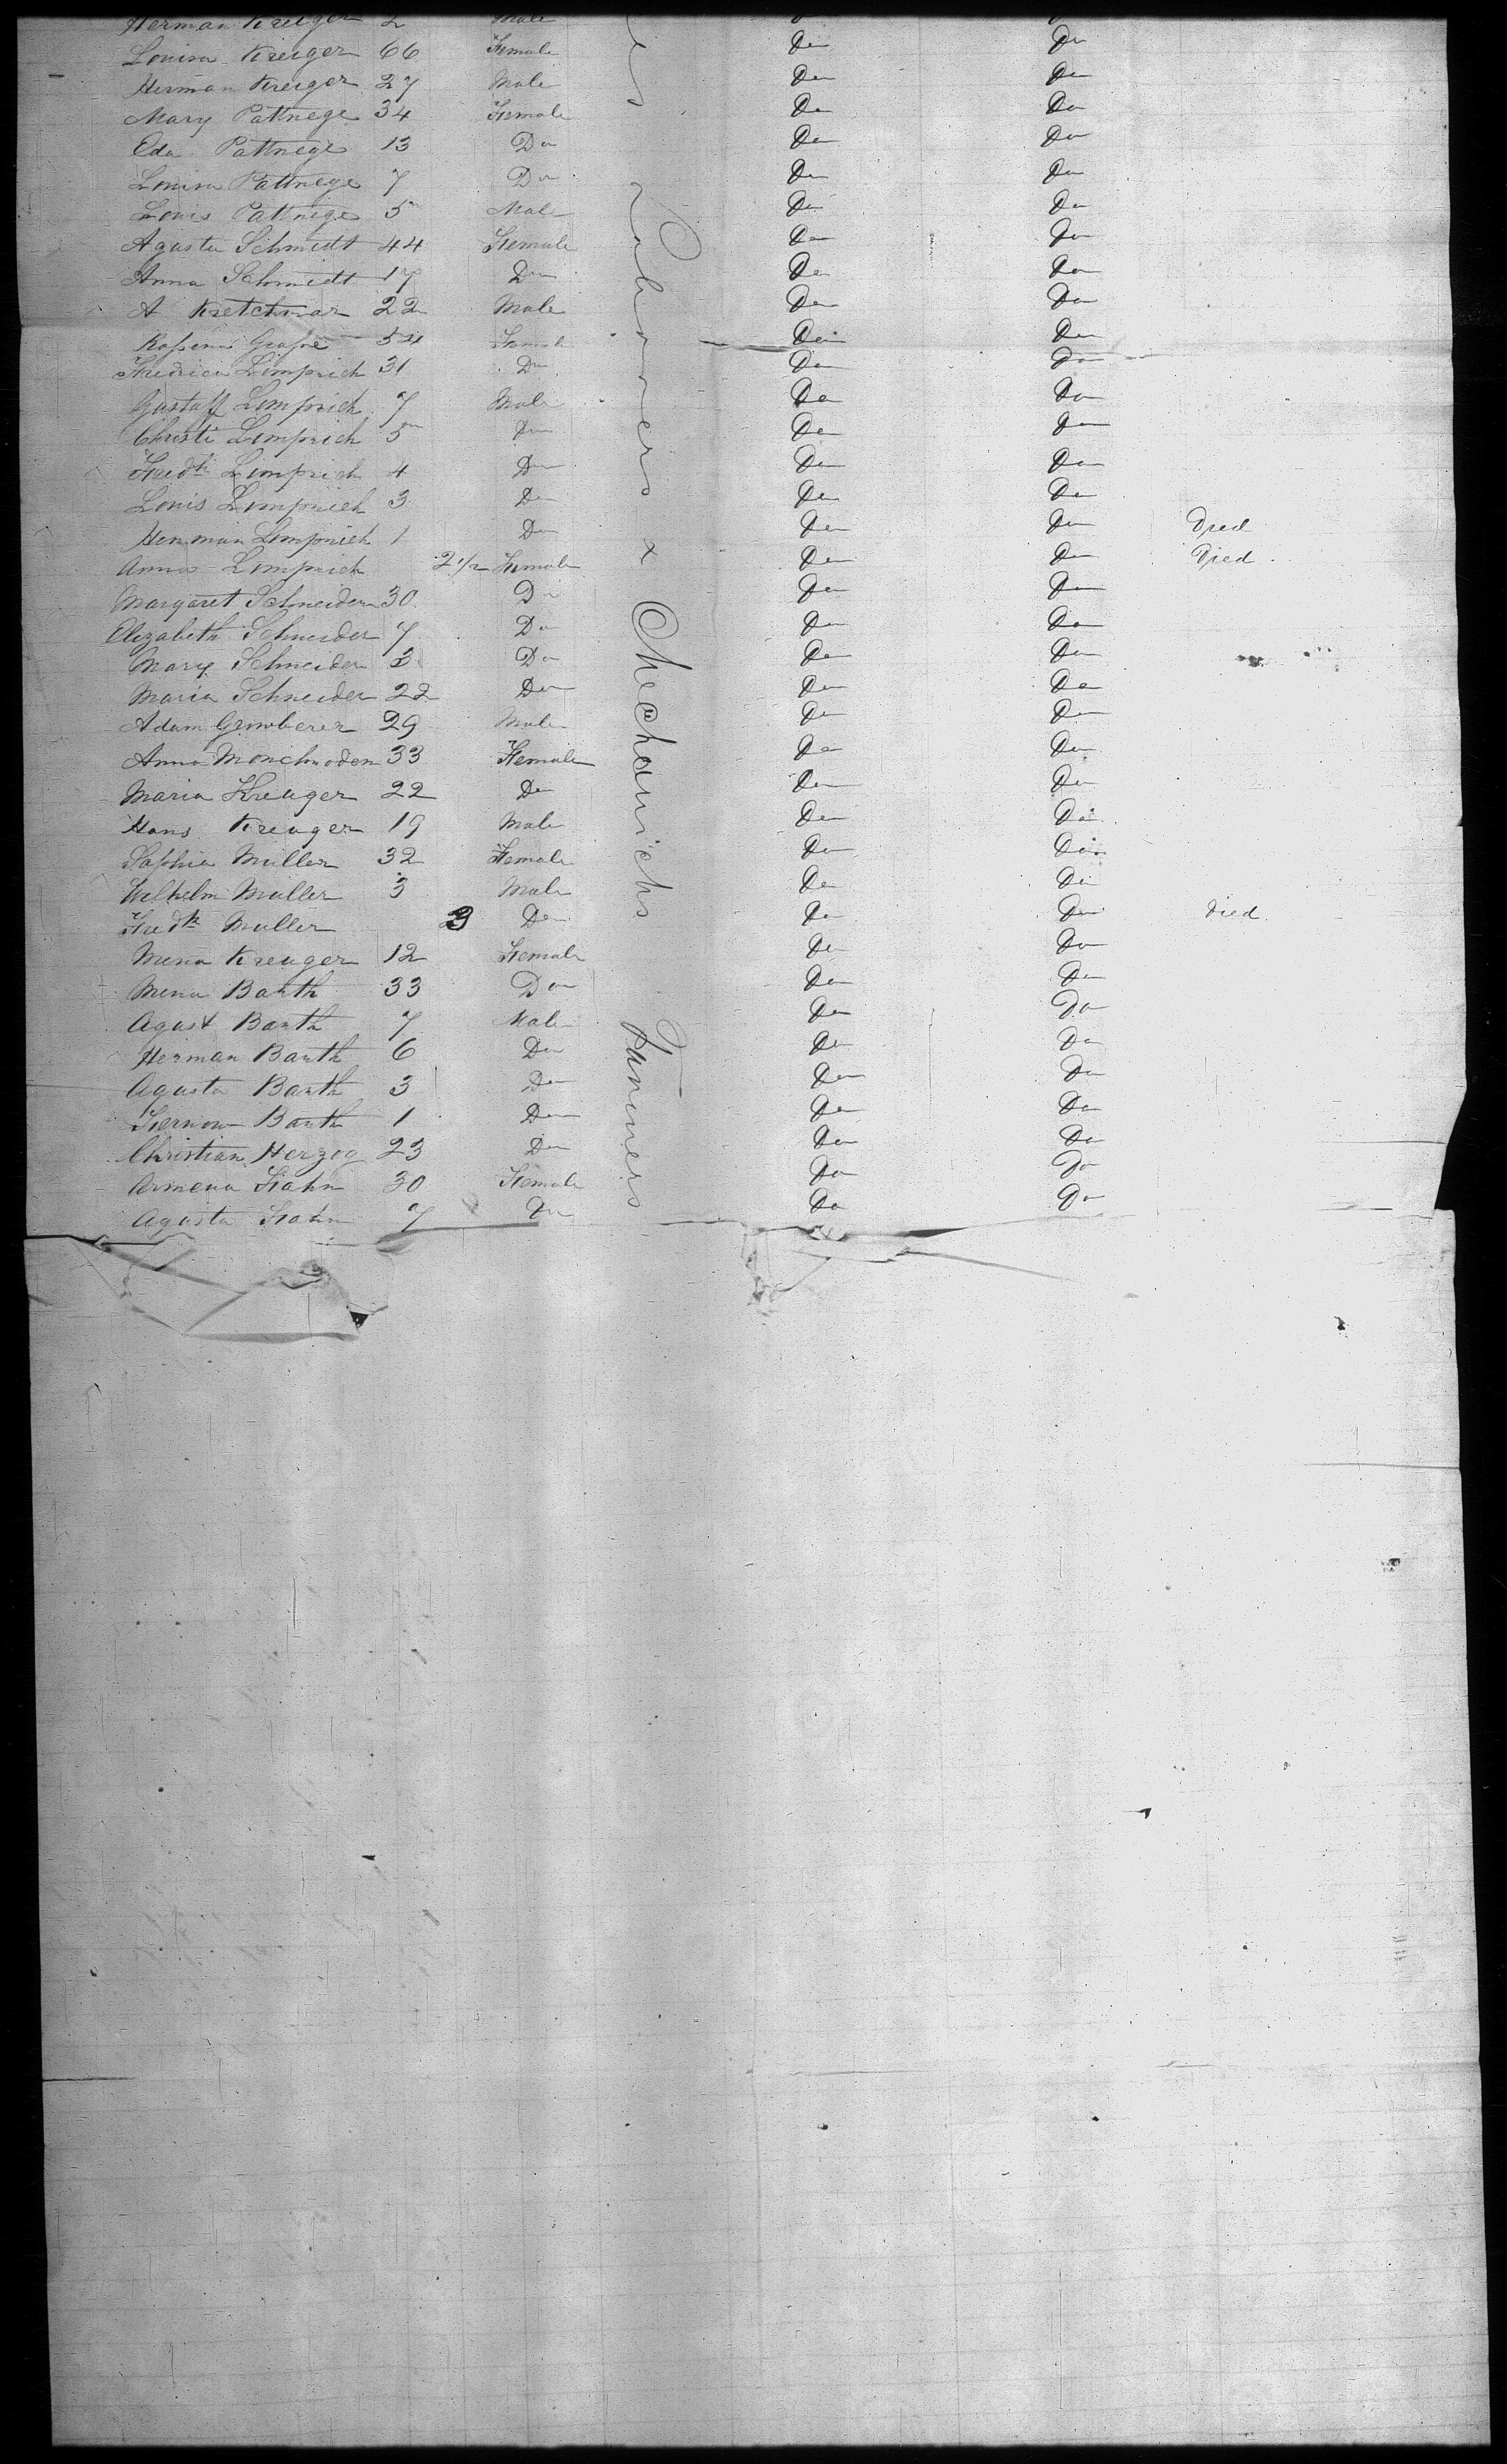 Herman Kreuger 2 Male
Louisa Kreuger 66 Female Do Do
Herman Kreuger 27 Male Do Do
Mary Pattnege 34 Female Do Do
Eda Pattnege 13 Do Do Do
Louisa Pattnege 7 Do Do Do
Louis Pattnege 5 Male Do Do
Agusta Schmidt 44 Female Do Do
Anna Schmidt 17 Do Do Do
A Kretchmar 22 Male Do Do
54 Female Do Do
Fredrica Limprich 31 Do Do Do
Gustaff Limprich 7 Male Do Do
Christi Limprich 5 Do Do Do
Fredk Limprich 4 Do Do Do
Louis Limprich 3 Do Do Do
Herman Limprich 1 Do Do Do Died
Anna Limprich 2 1/2 Female Do Do Died
Margaret Schneider 30 Do Do Do
Elizabeth Schneider 7 Do Do Do
Mary Schneider 3 Do Do Do
Maria Schneider 22 Do Do Do
Adam 29 Male Do Do
Anna 33 Female Do Do
Maria Kreuger 22 Do Do Do
Hans Kreuger 19 Male Do Do
Saphia Muller 32 Female Do Do
Wilhelm Muller 3 Male Do Do
Fredk Muller 3 Do Do Do Died
Mena Kreuger 12 Female Do Do
Mena Barth 33 Do Do Do
Agust Barth 7 Male Do Do
Herman Barth 6 Do Do Do
Agusta Barth 3 Do Do Do
Barth 1 Do Do Do
Christian Herzog 23 Do Do Do
Armena Hahn 30 Female Do Do
Agusta Hahn 7 Do Do Do
Labourers & Mechanichs Farmers